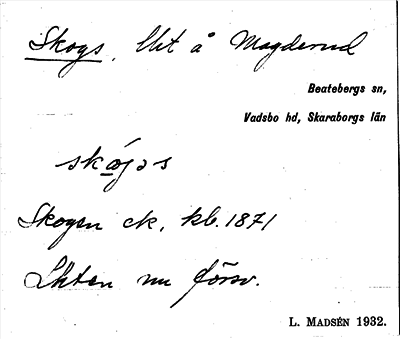 Skogs, lht å Magderud
Beatebergs sn,
Vadsbo hd, Skaraborgs län
skógəs
Skogen ck, kb. 1871
Lhten nu försv.
L. MADSÉN 1932.